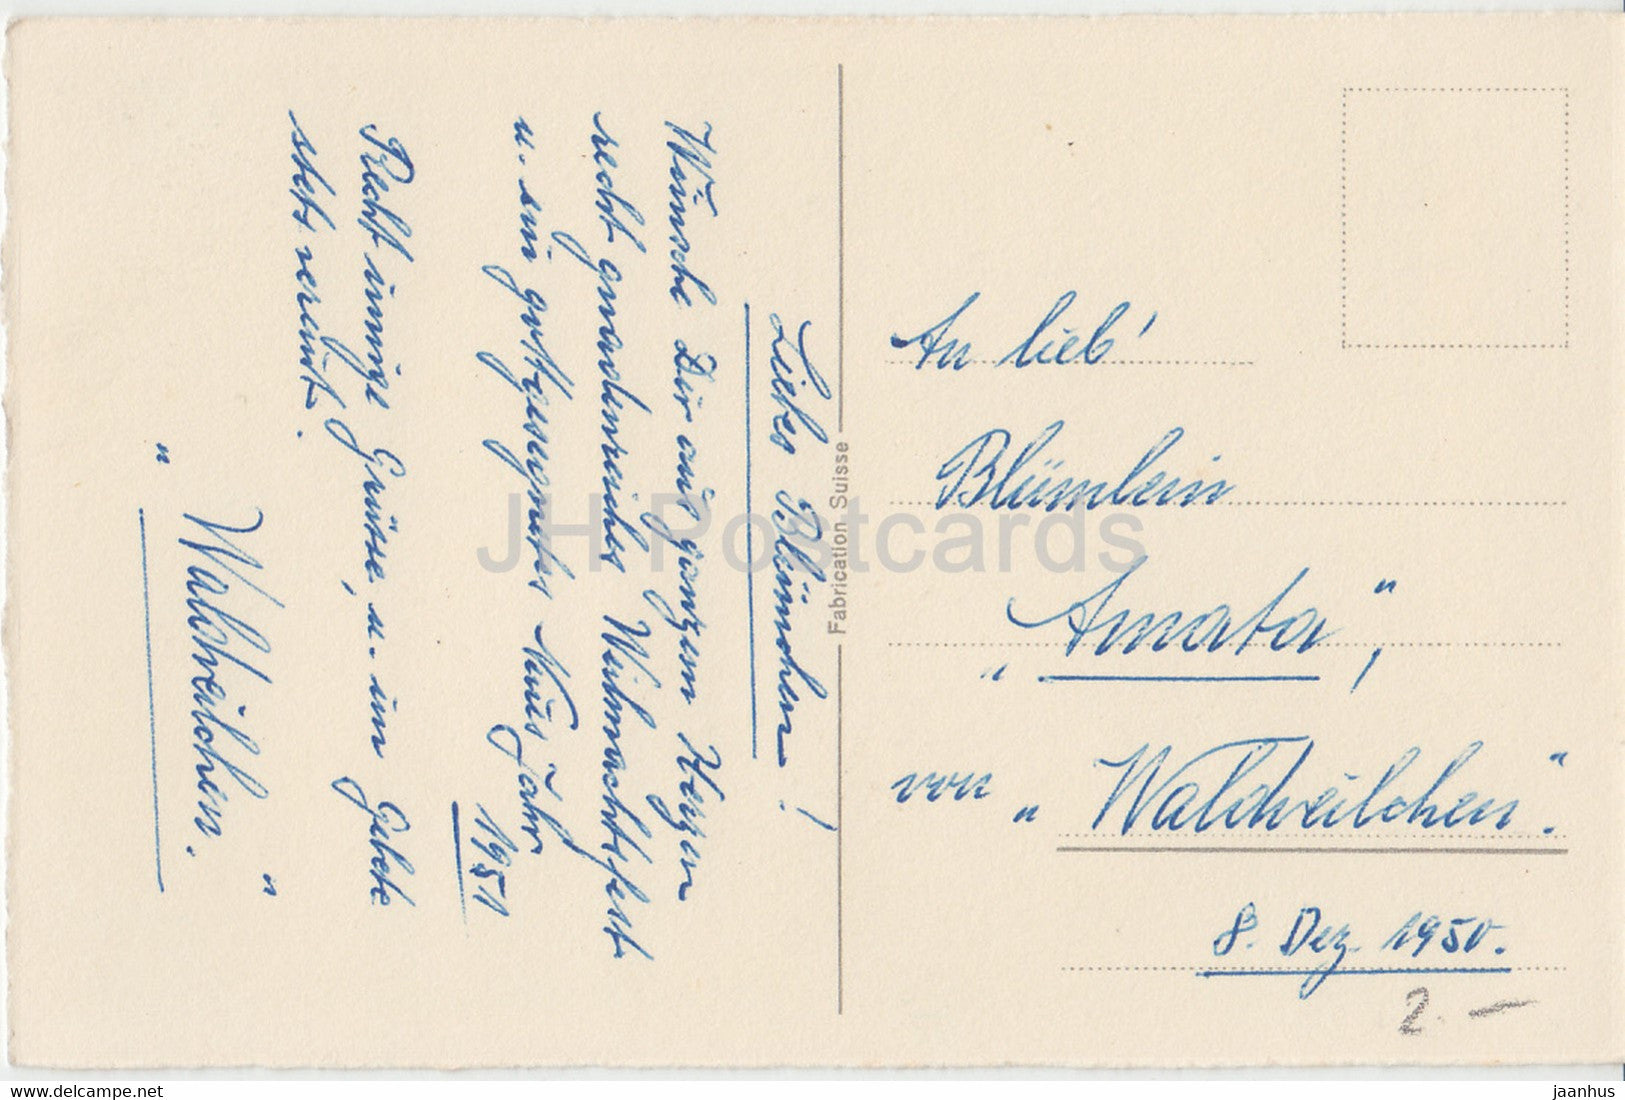 Liebes Blümchen!
Wünsche Dir aus ganzem Herzen
recht gnadenreiches Weihnachtsfest
u. ein gottgesegnetes Neues Jahr
1951
Recht innige Grüsse, u. im Gebete
stets vereint.
"Waldveilchen."
Fabrication Suisse
An lieb'
Blümlein
"Amata",
von "Waldveilchen".
8. Dez. 1950.
2.-
JH Postcards
www.delcampe.net
jaanhus